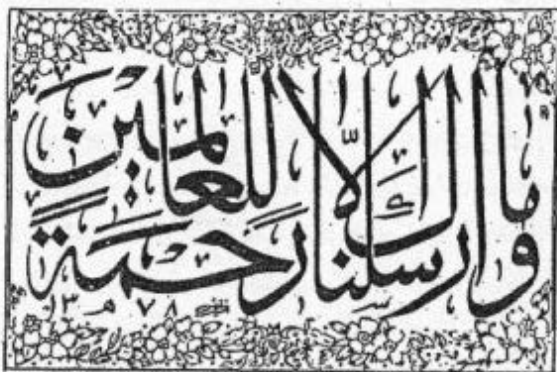 وما ارسلناك إلا رحمة للعالمين
١٣ م ٧٨